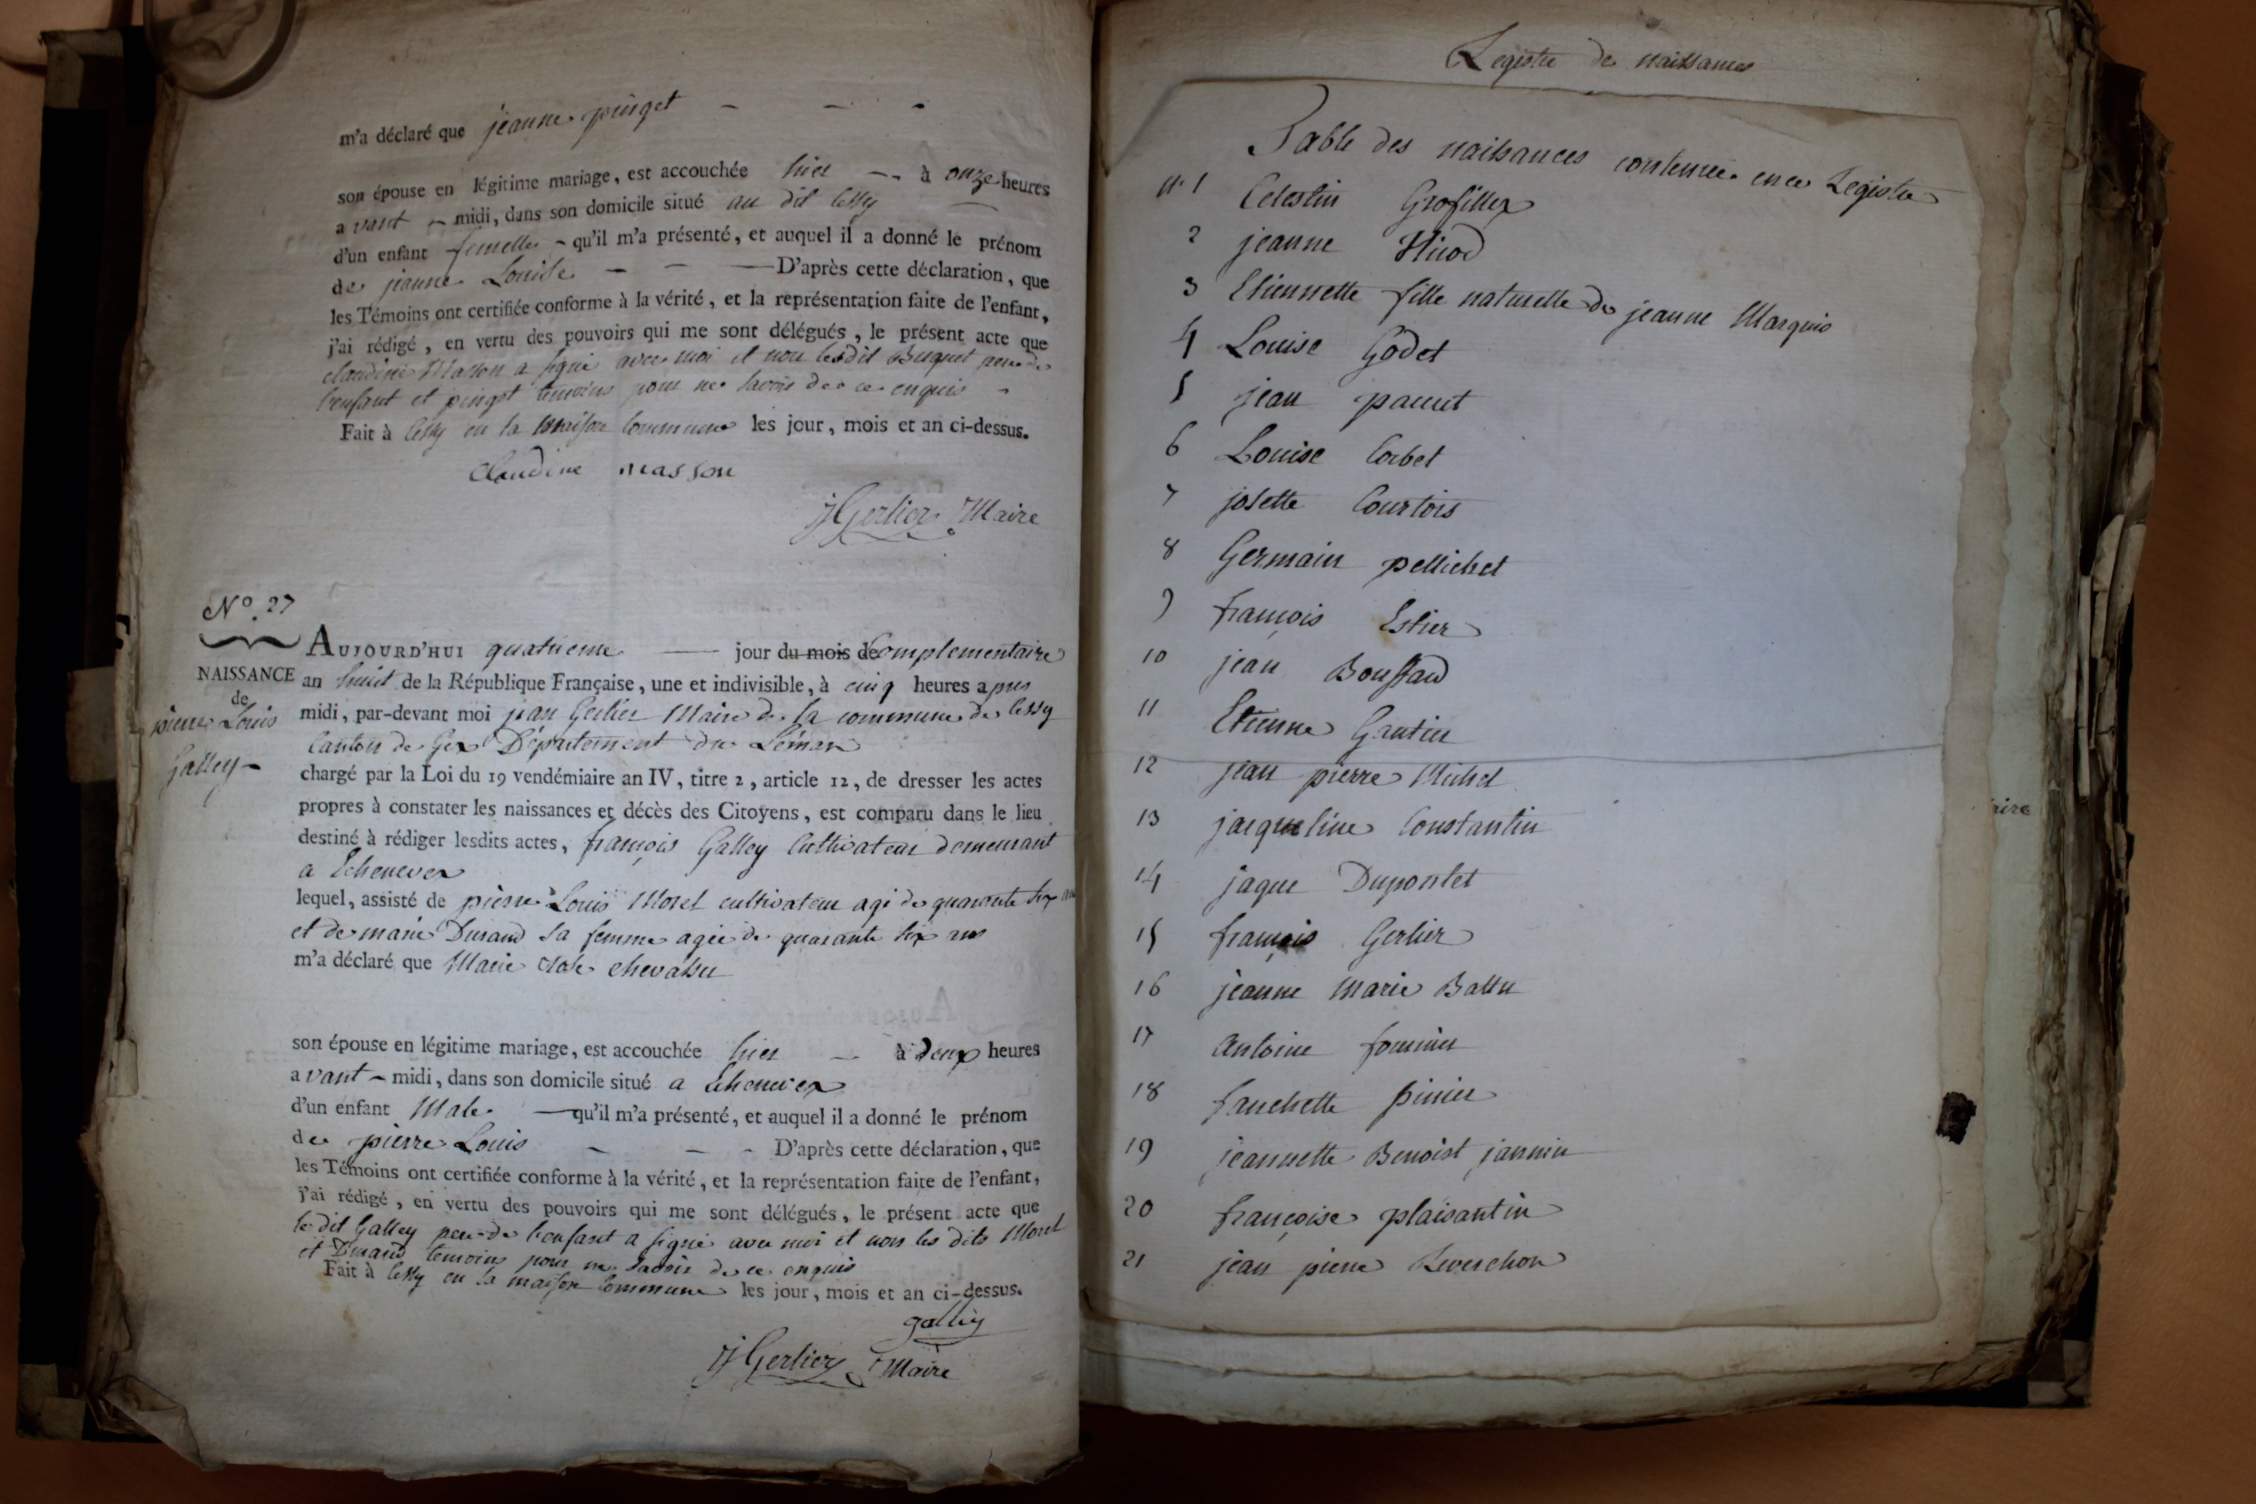 m'a déclaré que jeanne pinget
son épouse en légitime mariage, est accouchée hier à onze heures
avant midi, dans son domicile situé au dit Cessy
d'un enfant femelle qu'il m'a présenté, et auquel il a donné le prénom
de jeanne Louise D'après cette déclaration, que
les Témoins ont certifiée conforme à la vérité, et la représentation faite de l'enfant,
j'ai rédigé, en vertu des pouvoirs qui me sont délégués, le présent acte que
claudine Masson a signé avec moi et non ledit Buquet pere de
l'enfant et pinget temoins pour ne savoir de ce enquis
Fait à Cessy en la maison Commune les jour, mois et an ci-dessus.
Claudine masson
jGerlier Maire
N° 27
NAISSANCE
de
pierre Louis
Galley
AUJOURD'HUI quatrieme jour du mois de Complementaire
an huit de la République Française, une et indivisible, à cinq heures apres
midi, par-devant moi jean Gerlier Maire de la commune de Cessy
Canton de Gex Département du Léman
chargé par la Loi du 19 vendémiaire an IV, titre 2, article 12, de dresser les actes
propres à constater les naissances et décès des Citoyens, est comparu dans le lieu
destiné à rédiger lesdits actes, françois Galley Cultivateur demeurant
a Echenevex
lequel, assisté de pierre Louis Morel cultivateur agé de quarante six ans
et de marie Durand sa femme agée de quarante six ans
m'a déclaré que Marie chevalier
son épouse en légitime mariage, est accouchée hier à deux heures
avant midi, dans son domicile situé a Echenevex
d'un enfant Male qu'il m'a présenté, et auquel il a donné le prénom
de pierre Louis D'après cette déclaration, que
les Témoins ont certifiée conforme à la vérité, et la représentation faite de l'enfant,
j'ai rédigé, en vertu des pouvoirs qui me sont délégués, le présent acte que
le dit Galley pere de l'enfant a signé avec moi et non les dits Morel
et Durand temoins pour ne savoir de ce enquis
Fait à Cessy en la maison Commune les jour, mois et an ci-dessus.
galley
jGerlier Maire
Registre de naissances
Table des naissances contenues en ce Registre
n° 1 Celestin Grosfillex
2 jeanne
3 Etiennette fille naturelle de jeanne Marquis
4 Louise Godet
5 jean panut
6 Louise Corbet
7 josette Courtois
8 Germain pellichet
9 françois Estier
10 jean Boussard
11 Etienne Gautier
12 jean pierre Michel
13 jacqueline Constantin
14 jaque Dupontet
15 françois Gerlier
16 jeanne Marie
17 Antoine fournier
18 fanchette
19 jeannette Benoist jannin
20 françoise plaisantin
21 jean pierre Reverchon
aire